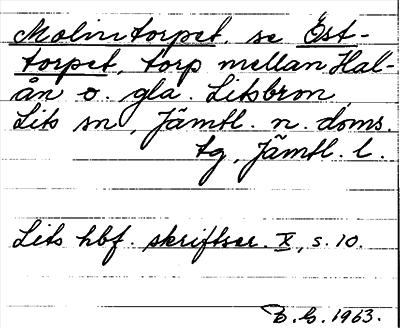 Molintorpet, se Öst-
torpet, torp mellan Hal-
ån o. gla. Litsbron,
Lits sn, Jämtl. n. doms.
tg, Jämtl. l.
Lits hbf. skriftser. X, s. 10.
E. G. 1963.